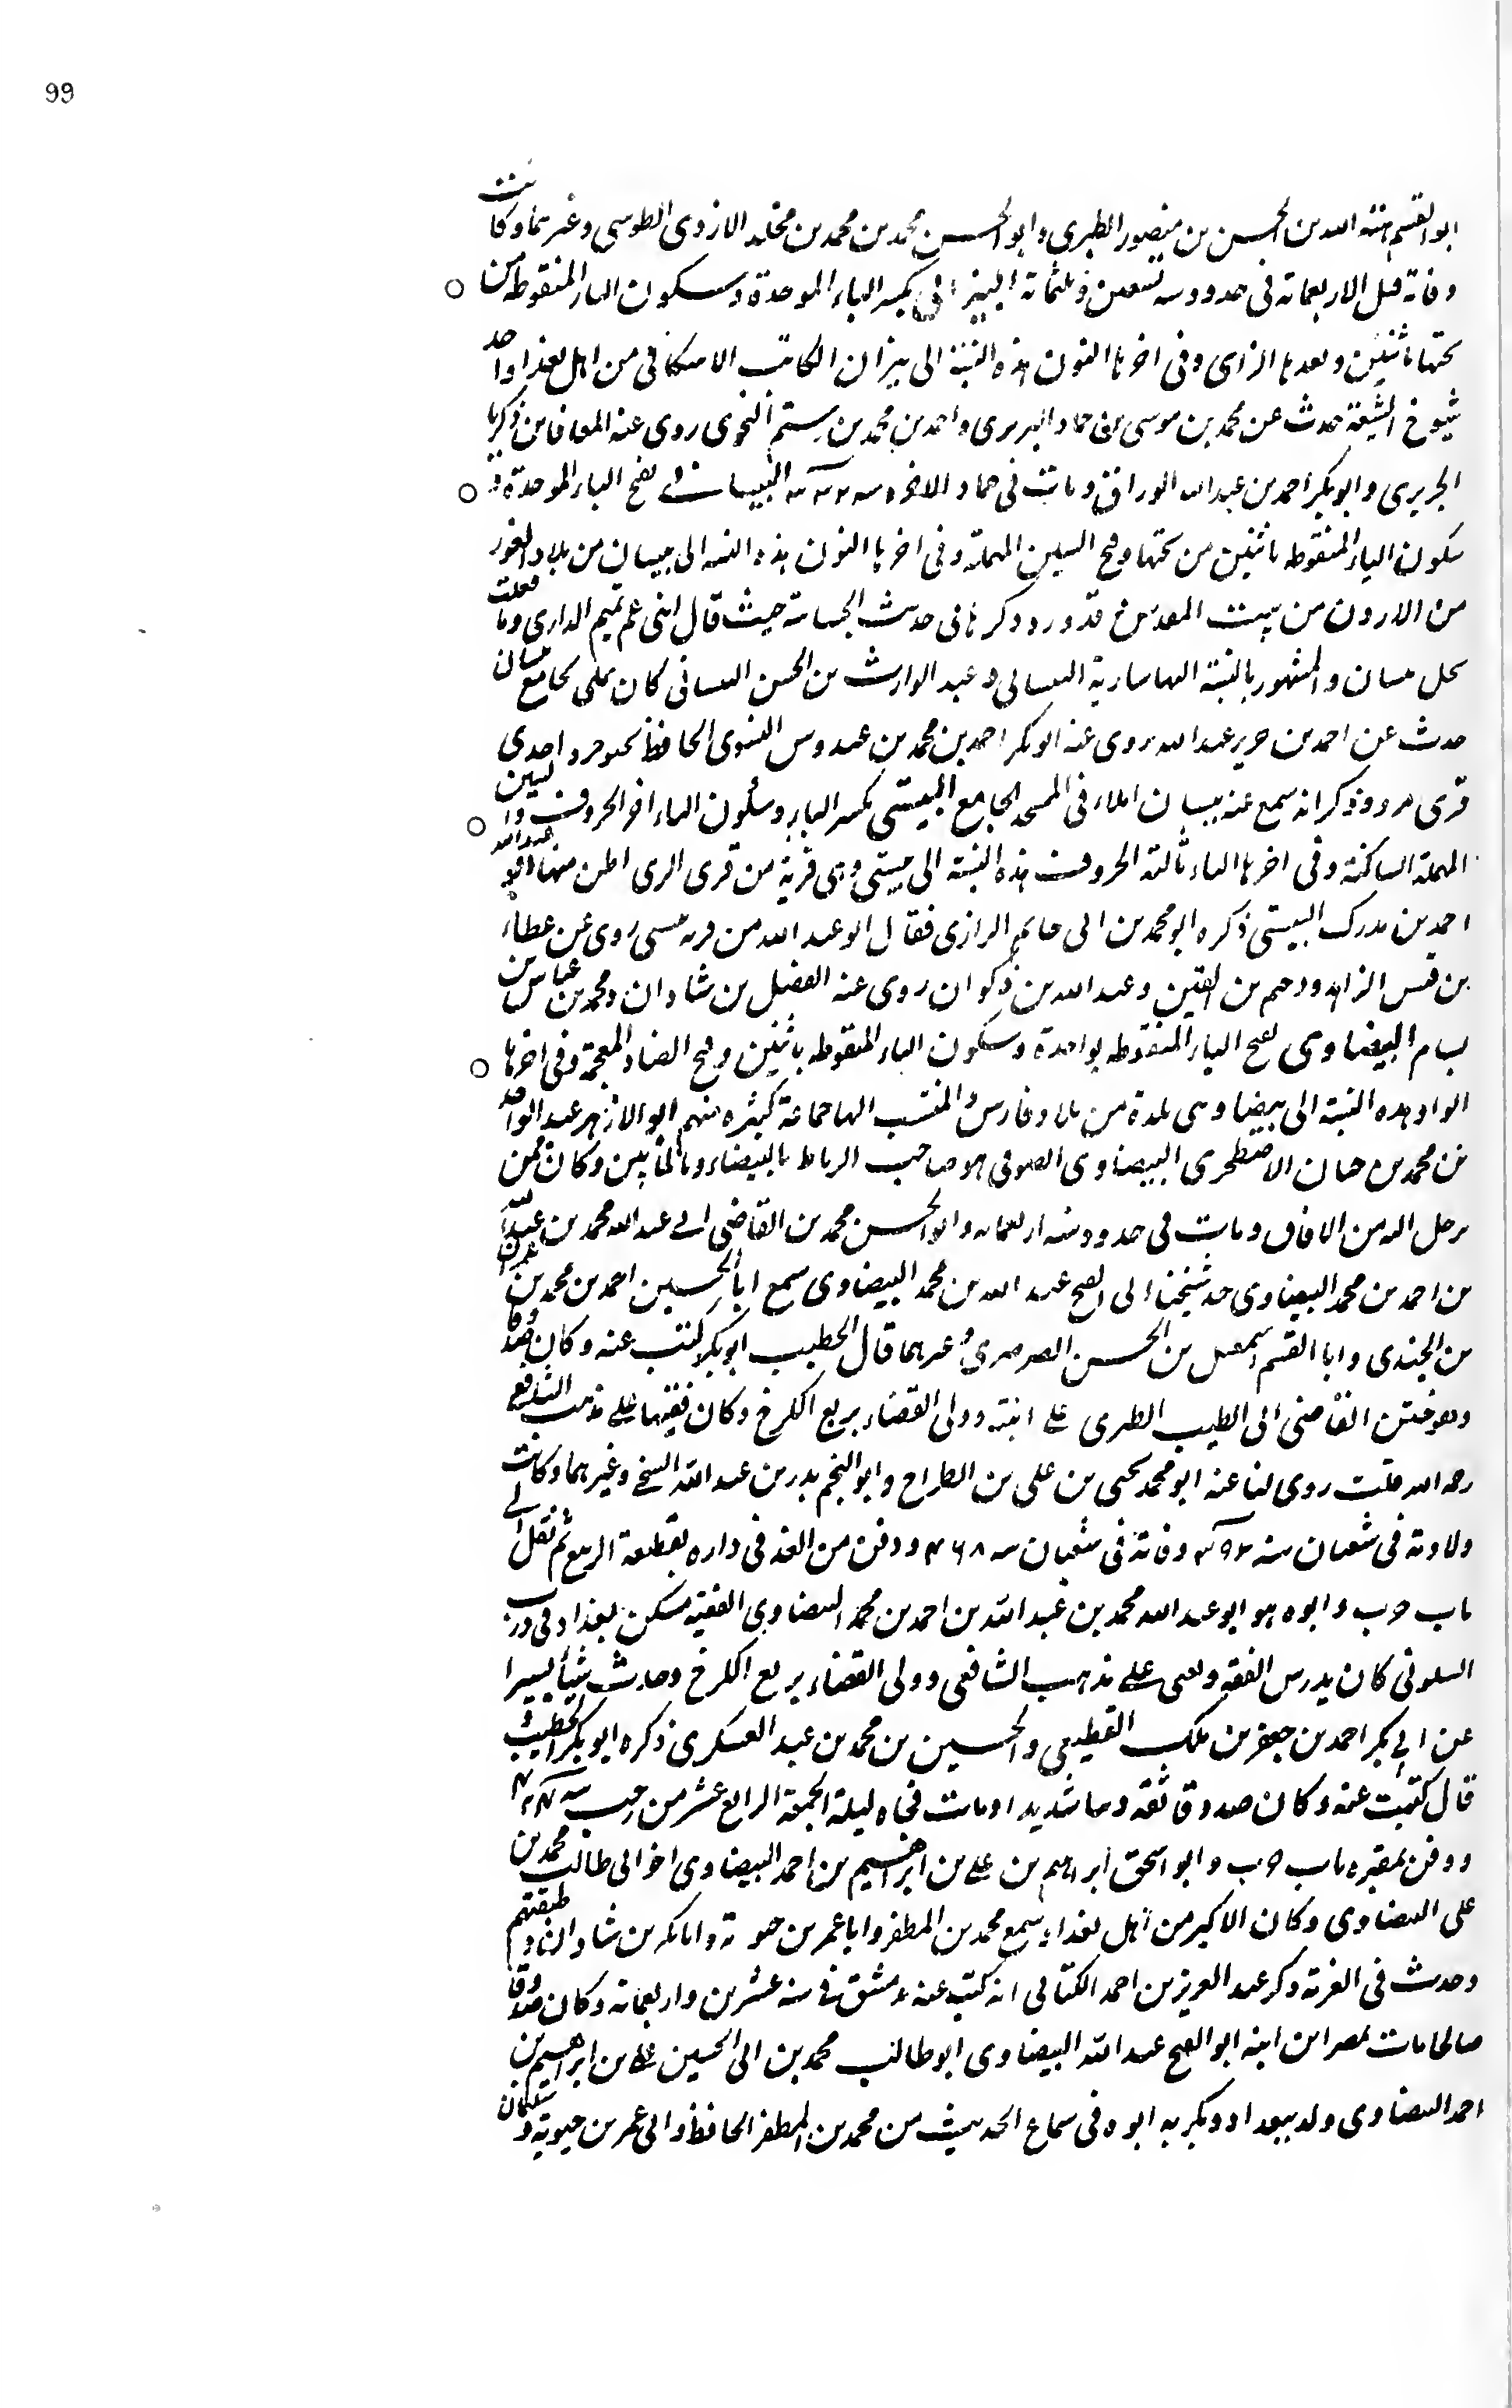 99
ابو القسم هبة الله بن الحسن بن منصور الطبرى وابو الحسن محمد بن محمد بن مخلد الازدى الطوسى وغيرهما وكانت
وفاته قبل الاربعمائة فى حدود سنه تسعين وثلثمائة البيزانى بكسر الباء الموحدة وسكون الياء المنقوطه من
تحتها باثنتين وبعدها الزاى وفى اخرها النون هذه النسبة الى بيزان الكاتب الاسكافى من اهل بغداد احد
شيوخ الشيعة حدث عن محمد بن موسى بن حماد البربرى واحمد بن محمد بن رستم النحوى روى عنه المعافا بن زكريا
الجريرى وابو بكر احمد بن عبد الله الوراق ومات فى جماد الاخره سنه البيسانى بفتح الباء الموحدة و
سكون الياء المنقوطه باثنتين من تحتها وفتح السين المهملة وفى اخرها النون هذه النسبه الى بيسان من بلاد الغور
من الاردن من بيت المقدس قد ورد ذكرها فى حديث الجساسة حيث قال ابن عم تميم الدارى وما فعلت
نخل بيسان والمشهور بالنسبة اليها سارية البيسانى وعبد الوارث بن الحسن البيسانى كان يملى بجامع بيسان
حدث عن احمد بن حرير عبد الله روى عنه ابو بكر احمد بن محمد بن عبدوس النسوى الحافظ احدى
قرى مرو وذكر انه سمع عنه ببيسان املاء فى المسجد الجامع البيستى بكسر الباء وسكون الياء اخر الحروف والسين
المهملة الساكنة وفى اخرها التاء ثالثة الحروف هذه النسبة الى بيستى وهى قرية من قرى الرى اظن منها ابو عبد الله
احمد بن مدرك البيستى ذكره ابو محمد بن ابى حاتم الرازى فقال ابو عبد الله من قريه بيستى روى عن عطاء
بن قيس الزاهد ورحيم بن وعبد الله بن ذكوان روى عنه الفضل بن شاذان ومحمد بن عباس بن
بسام البيضاوى بفتح الباء المنقوطه بواحدة وسكون الياء المنقوطه باثنتين وفتح الضاد المعجمة وفى اخرها
الواو هذه النسبة الى بيضا وهى بلدة من بلاد فارس والمنتسب اليها جماعة كثيره منهم ابو الازهر عبد الواحد
بن محمد بن حيان الاصطخرى البيضاوى الصوفى هو صاحب الرباط بالبيضاء وكان ممن
يرحل اليه من الافاق ومات فى حدود سنه اربعمائه وابو الحسن محمد بن القاضى ابى عبد الله محمد بن عبد الله
بن احمد بن محمد البيضاوى جد شيخنا ابى الفتح عبد الله بن محمد البيضاوى سمع ابا الحسين احمد بن محمد بن عمران
بن الجندى وابا القسم اسمعيل بن الحسن الصرصرى وغيرهما قال الخطيب ابو بكر كتبت عنه وكان صدوقا
وهو ختن القاضى ابى الطيب الطبرى على ابنته وولى القضاء بربع الكرخ وكان فقيها على مذهب الشافعى
رحمه الله قلت روى لنا عنه ابو محمد يحيى بن على بن الطراح وابو النجم بدر بن عبد الله الشيخى وغيرهما وكانت
ولادته فى شعبان سنه ٣٩٢ وفاته فى شعبان سنه ٤٦٨ ودفن من الغد فى داره بقطيعة الربيع ثم نقل الى
باب حرب وابوه هو ابو عبد الله محمد بن عبد الله بن احمد بن محمد البيضاوى الفقيه سكن بغداد فى درب
السلولى كان يدرس الفقه ويفتى على مذهب الشافعى وولى القضاء بربع الكرخ وحدث شيأ يسيرا
عن ابى بكر احمد بن جعفر بن ملك القطيعى والحسين بن محمد بن عبيد العسكرى ذكره ابو بكر الخطيب و
قال كتبت عنه وكان صدوقا ثقة دينا شديدا ومات فجاه ليلة الجمعة الرابع عشر من رجب سنه ٤٢٤
ودفن بمقبره باب حرب وابو اسحق ابراهيم بن على بن ابراهيم بن احمد البيضاوى اخو ابى طالب محمد بن
على البيضاوى وكان الاكبر من اهل بغداد سمع محمد بن المظفر وابا عمر بن حيويه وابا بكر بن شاذان وطبقتهم
وحدث فى الغربة ذكر عبد العزيز بن احمد الكتانى انه كتب عنه بدمشق فى سنه عشرين واربعمائه وكان صدوقا
صالحا مات بمصر ابن ابنه ابو الفتح عبد الله البيضاوى ابو طالب محمد بن ابى الحسين على بن ابراهيم بن
احمد البيضاوى ولد ببغداد وبكر به ابوه فى سماع الحديث من محمد بن المظفر الحافظ وابى عمر بن حيويه و